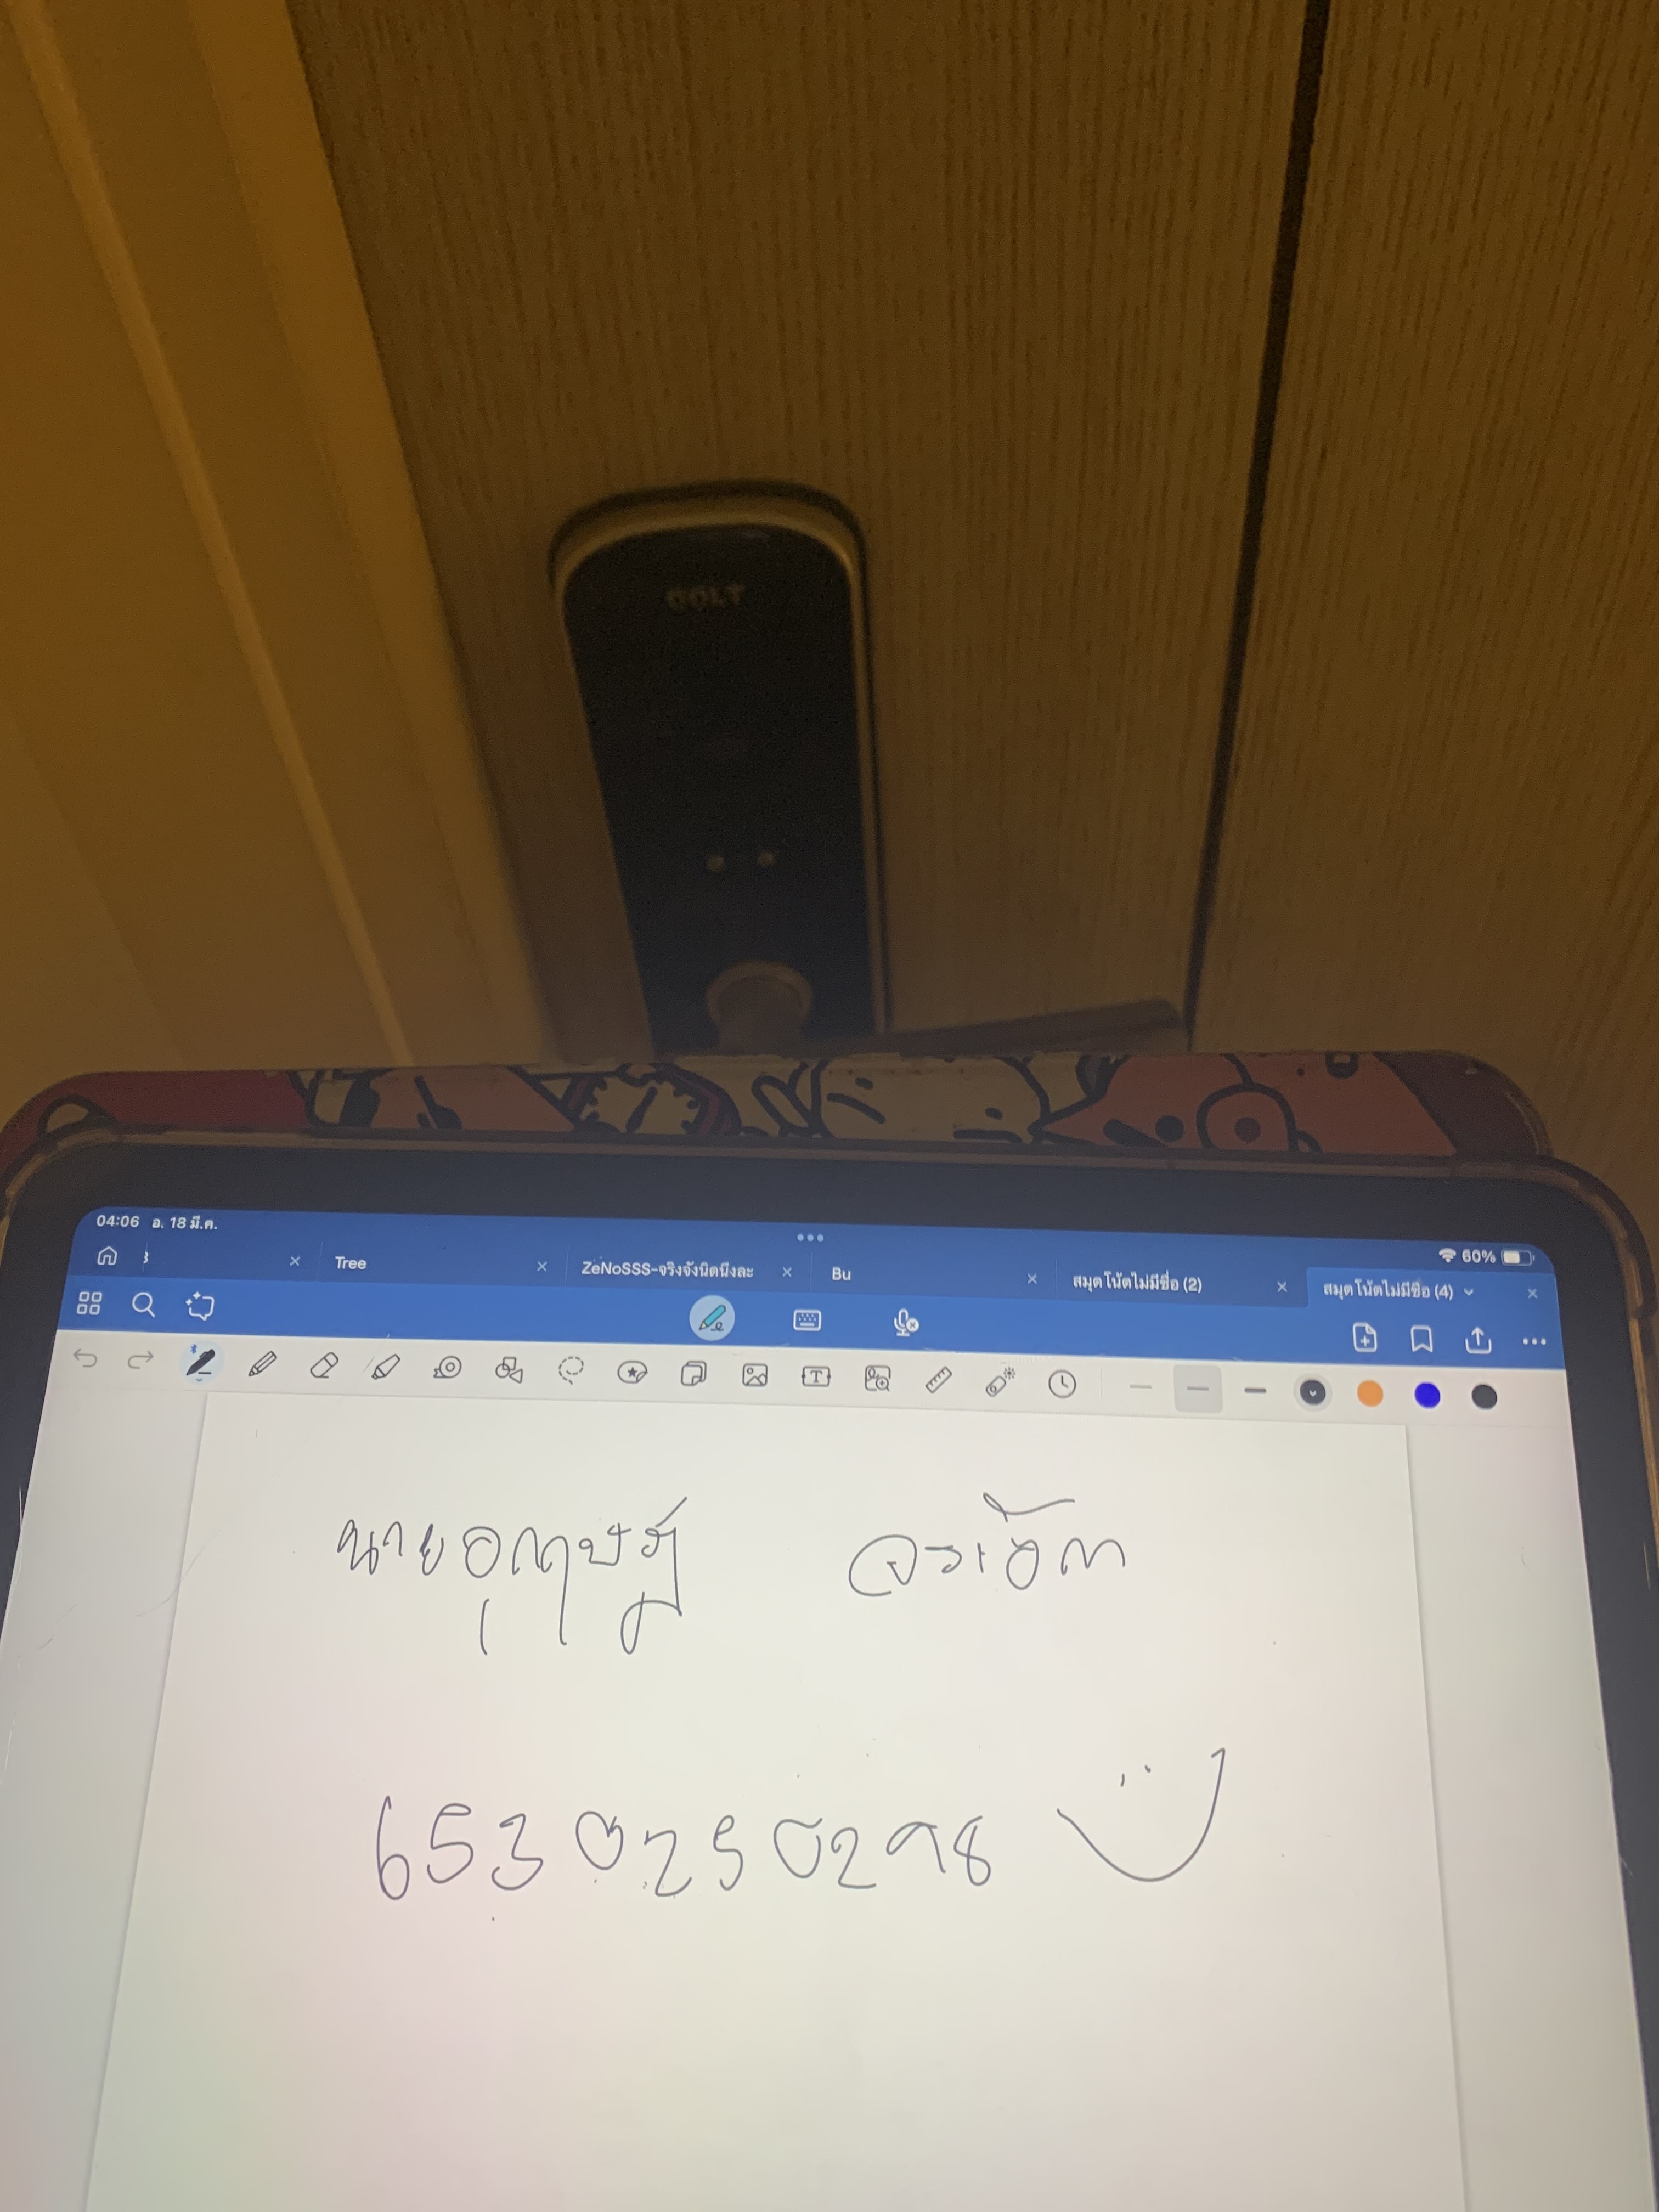 COLT
04:06 อ. 18 มี.ค.
60%
Tree
ZeNoSSS-จริงจังนิดนึงละ
Bu
สมุดโน้ตไม่มีชื่อ (2)
สมุดโน้ตไม่มีชื่อ (4)
นายอุกฤษฎ์
6530250298